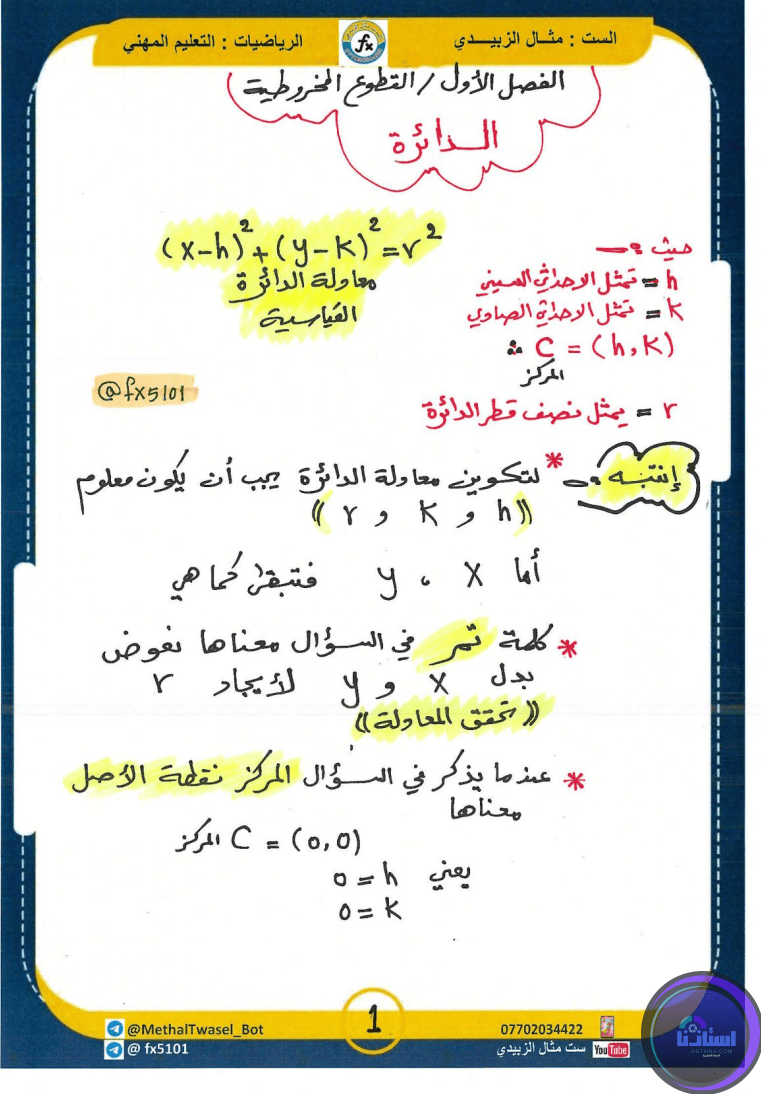 الست : مثال الزبيدي
fx
الرياضيات : التعليم المهني
الفصل الأول / القطوع المخروطية
الدائرة
(x-h)² + (y-k)² = r²
معادلة الدائرة
القياسية
حيث :-
h = تمثل الاحداثي السيني
k = تمثل الاحداثي الصادي
∴ C = (h,k)
المركز
@fx5101
r = يمثل نصف قطر الدائرة
إنتبه :-
* لتكوين معادلة الدائرة يجب أن يكون معلوم
(( h و k و r ))
أما x ، y فتبقى كما هي
* كلمة تمر في السؤال معناها نعوض
بدل x و y لأيجاد r
(( تحقق المعادلة ))
* عندما يذكر في السؤال المركز نقطة الأصل
معناها
المركز C = (0,0)
يعني h = 0
k = 0
1
@MethalTwasel_Bot
07702034422
@ fx5101
ست مثال الزبيدي YouTube
استاذنا